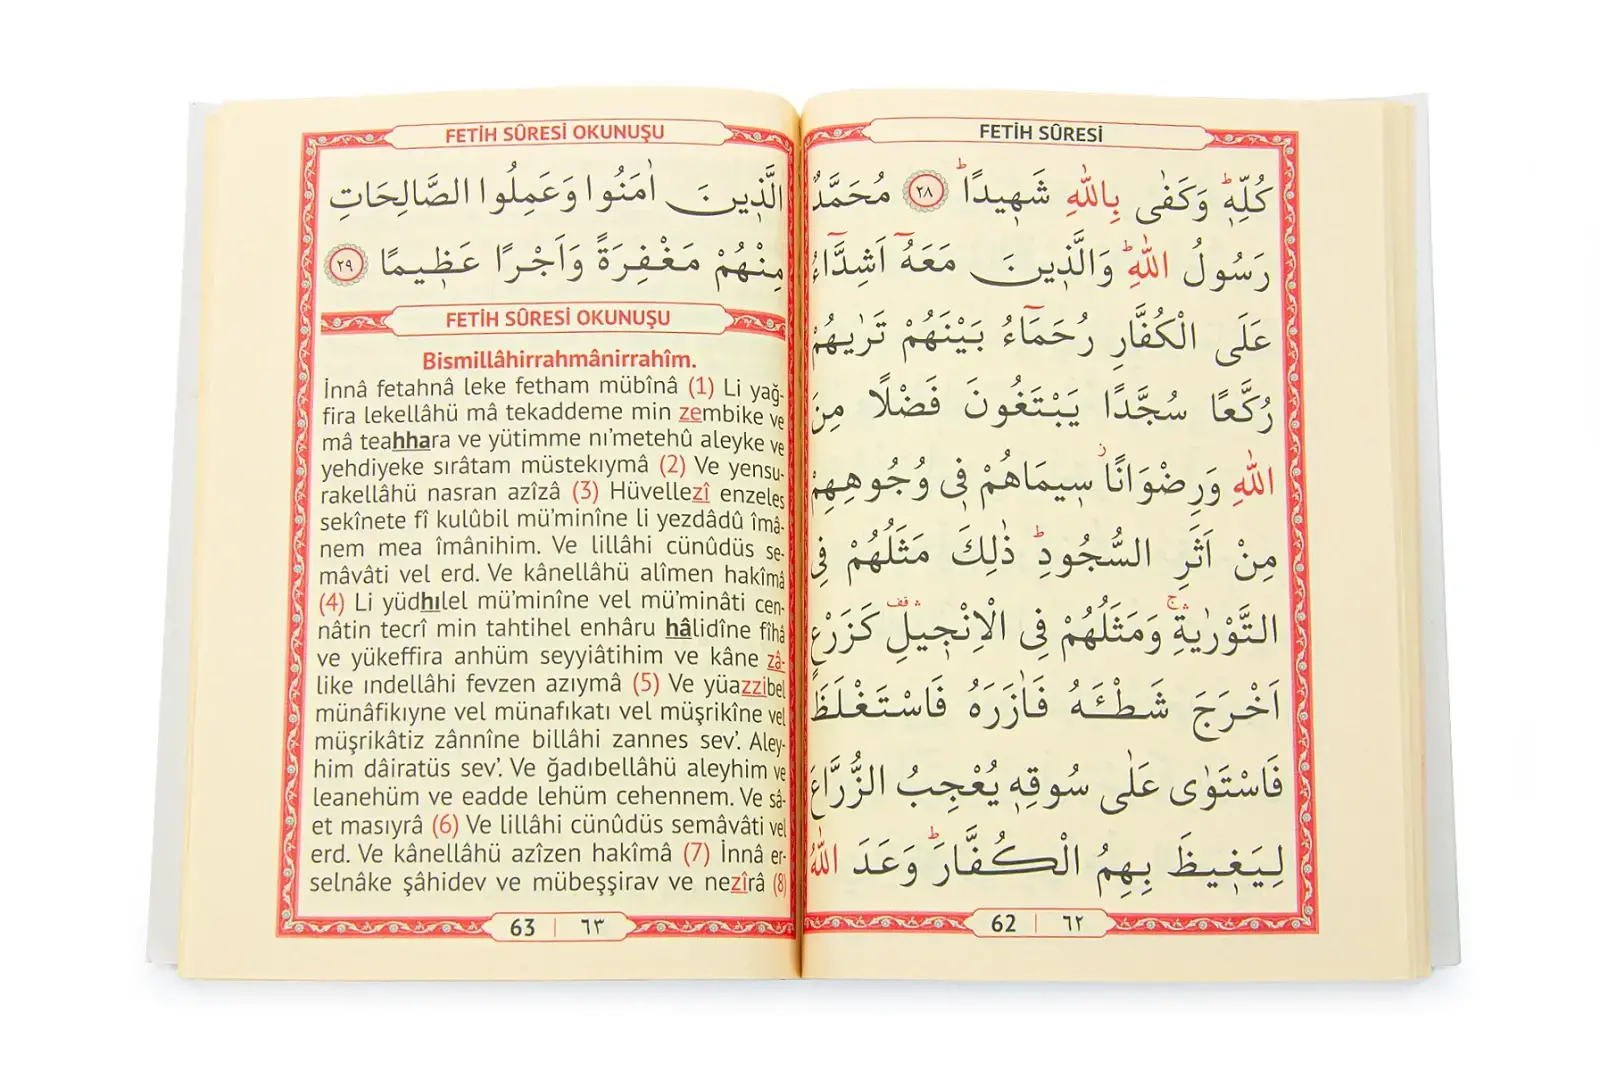 FETİH SÛRESİ
كُلِّهٖؕ وَكَفٰى بِاللّٰهِ شَهٖيدًاؕ ﴿٢٨﴾ مُحَمَّدٌ
رَسُولُ اللّٰهِؕ وَالَّذٖينَ مَعَهُٓ اَشِدَّٓاءُ
عَلَى الْكُفَّارِ رُحَمَٓاءُ بَيْنَهُمْ تَرٰيهُمْ
رُكَّعًا سُجَّدًا يَبْتَغُونَ فَضْلًا مِنَ
اللّٰهِ وَرِضْوَانًاؗ سٖيمَاهُمْ فٖى وُجُوهِهِمْ
مِنْ اَثَرِ السُّجُودِؕ ذٰلِكَ مَثَلُهُمْ فِى
التَّوْرٰيةِۚۛ وَمَثَلُهُمْ فِى الْاِنْجٖيلِࣞۛ كَزَرْعٍ
اَخْرَجَ شَطْـَٔهُ فَاٰزَرَهُ فَاسْتَغْلَظَ
فَاسْتَوٰى عَلٰى سُوقِهٖ يُعْجِبُ الزُّرَّاعَ
لِيَغٖيظَ بِهِمُ الْكُفَّارَؕ وَعَدَ اللّٰهُ
62 | ٦٢
FETİH SÛRESİ OKUNUŞU
الَّذٖينَ اٰمَنُوا وَعَمِلُوا الصَّالِحَاتِ
مِنْهُمْ مَغْفِرَةً وَاَجْرًا عَظٖيمًا ﴿٢٩﴾
FETİH SÛRESİ OKUNUŞU
Bismillâhirrahmânirrahîm.
İnnâ fetahnâ leke fetham mübînâ (1) Li yağ-
fira lekellâhü mâ tekaddeme min zembike ve
mâ teahhara ve yütimme nı’metehû aleyke ve
yehdiyeke sırâtam müstekıymâ (2) Ve yensu-
rakellâhü nasran azîzâ (3) Hüvellezî enzeles
sekînete fî kulûbil mü’minîne li yezdâdû îmâ-
nem mea îmânihim. Ve lillâhi cünûdüs se-
mâvâti vel erd. Ve kânellâhü alîmen hakîmâ
(4) Li yüdhılel mü’minîne vel mü’minâti cen-
nâtin tecrî min tahtihel enhâru hâlidîne fîhâ
ve yükeffira anhüm seyyiâtihim ve kâne zâ-
like ındellâhi fevzen azıymâ (5) Ve yüazzibel
münâfikıyne vel münafıkatı vel müşrikîne vel
müşrikâtiz zânnîne billâhi zannes sev’. Aley-
him dâiratüs sev’. Ve ğadıbellâhü aleyhim ve
leanehüm ve eadde lehüm cehennem. Ve sâ-
et masıyrâ (6) Ve lillâhi cünûdüs semâvâti vel
erd. Ve kânellâhü azîzen hakîmâ (7) İnnâ er-
selnâke şâhidev ve mübeşşirav ve nezîrâ (8)
63 | ٦٣